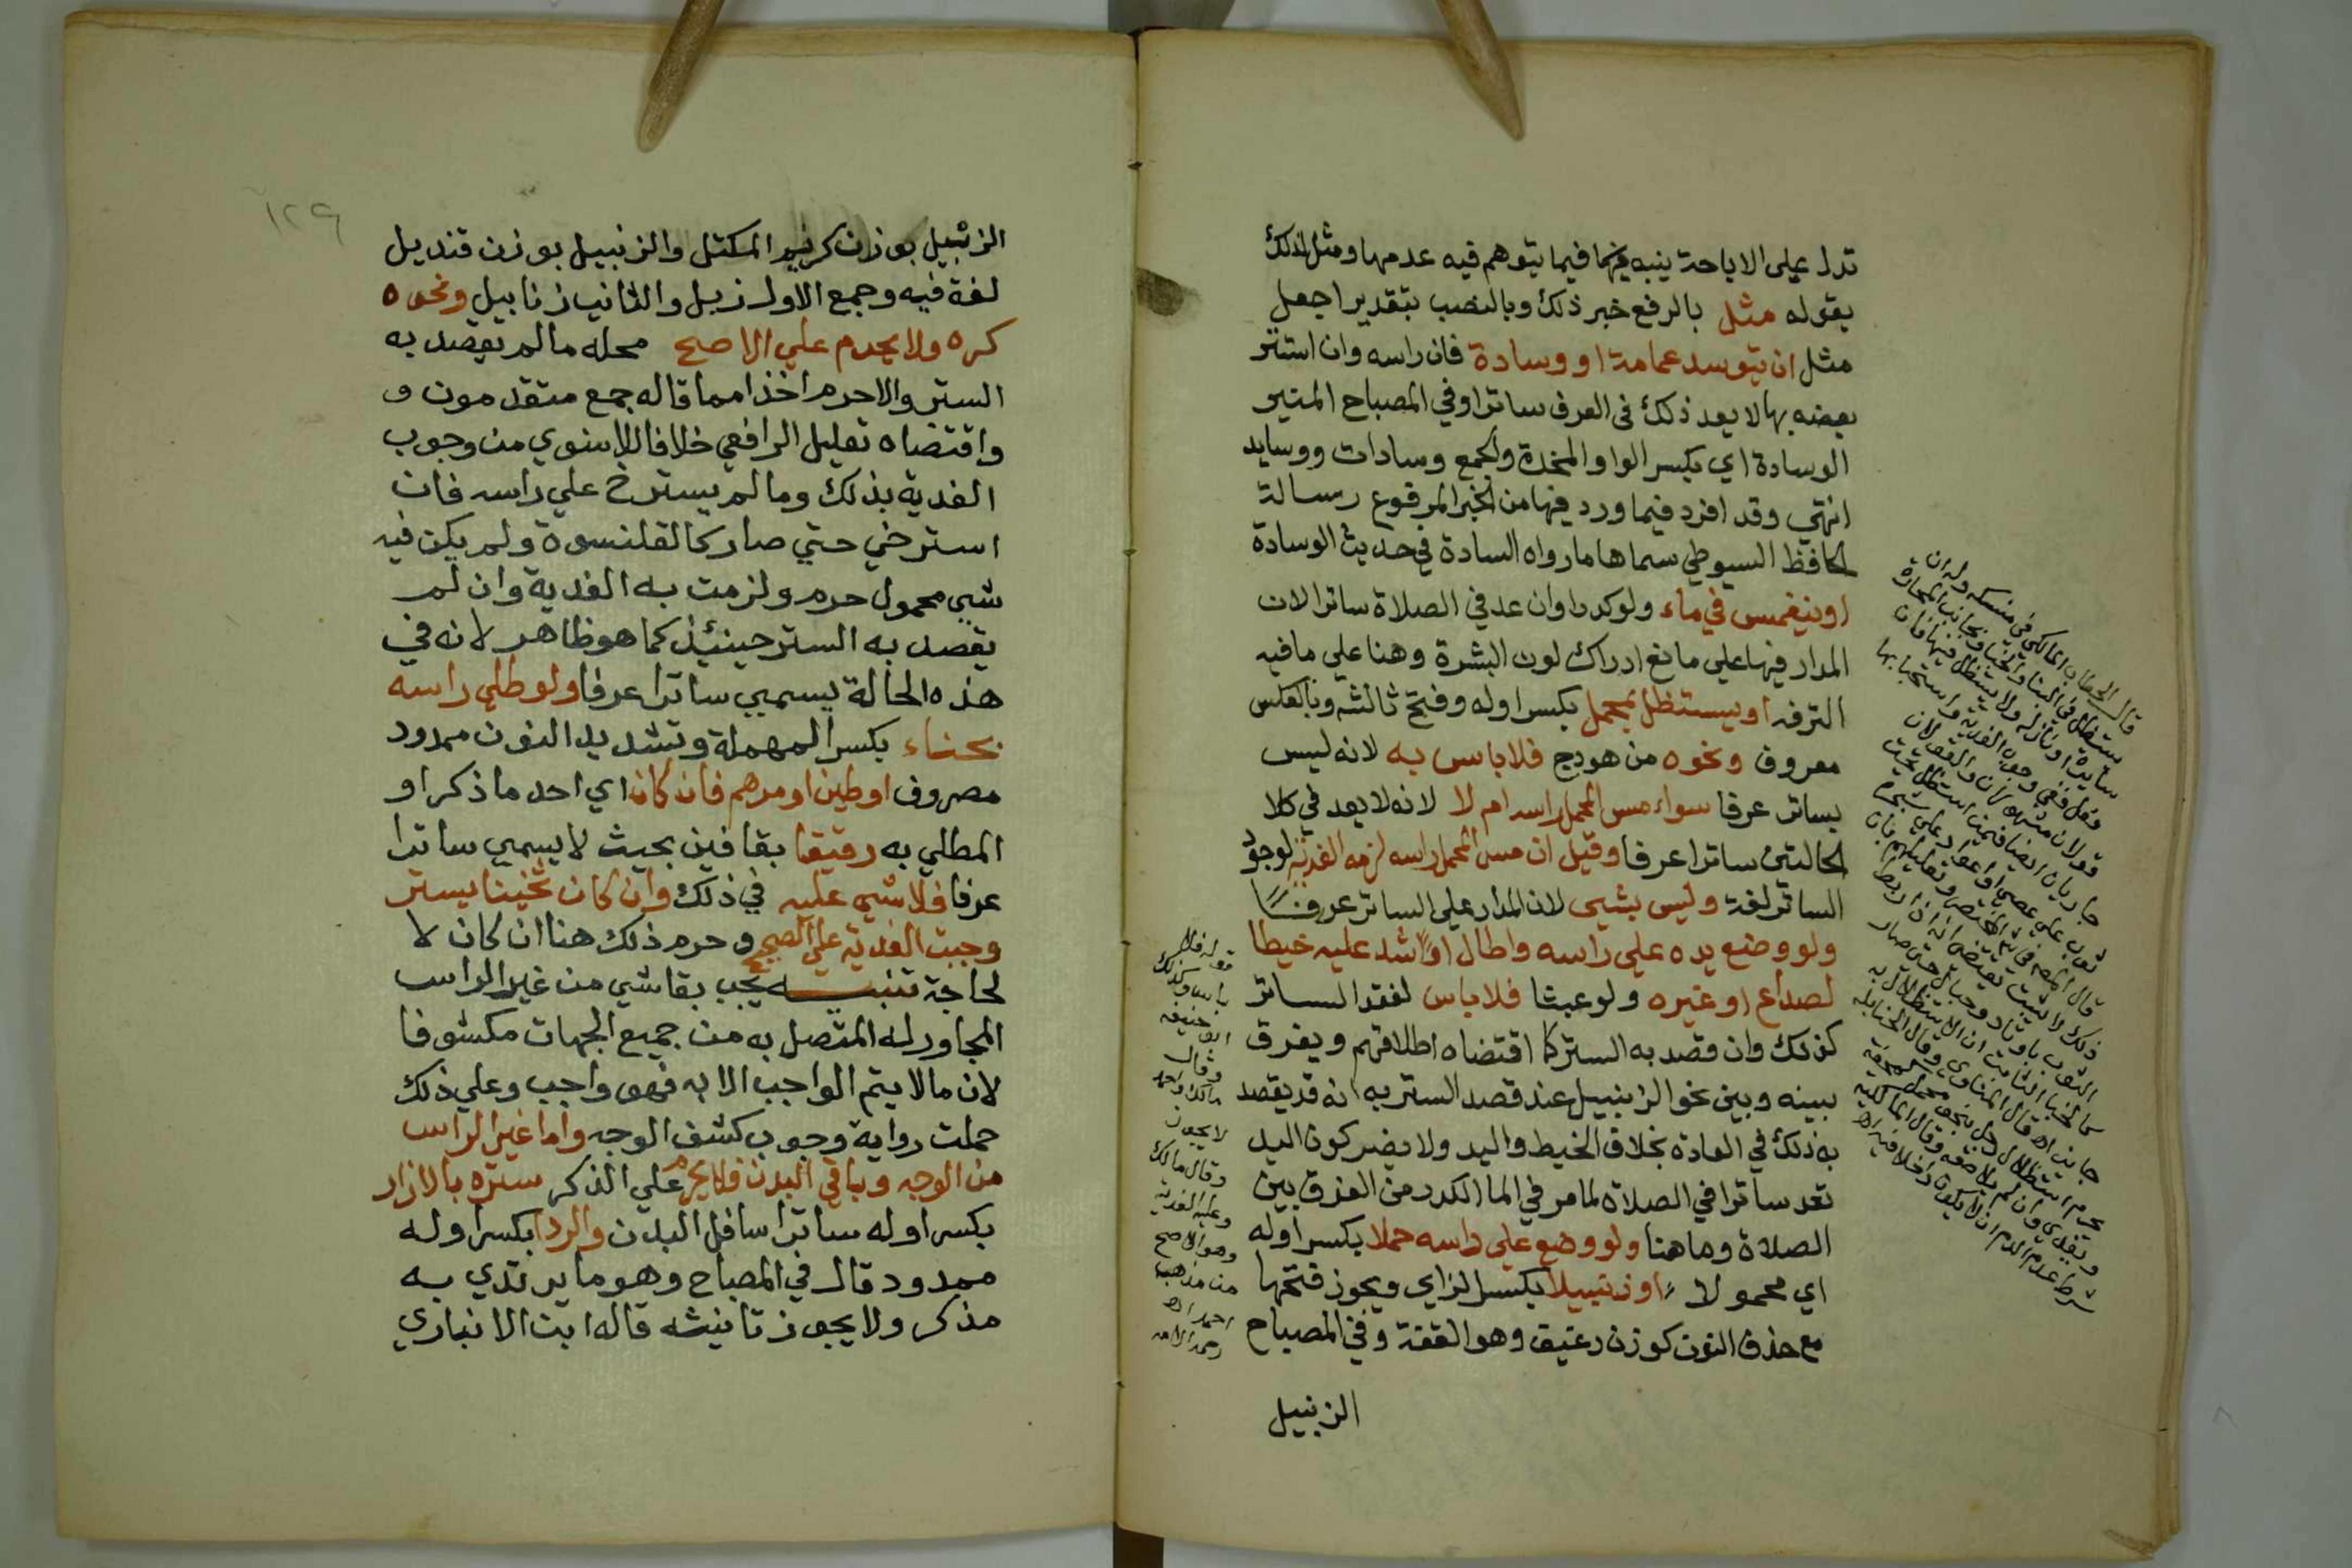 تدل علي الاباحة ينبه بها فيما يتوهم فيه عدمها ومثل لذلك
بقوله مثل بالرفع خبر ذلك وبالنصب بتقدير اجعل
مثل ان يتوسد عمامة او وسادة فان راسه وان استتر
بعضه بها لا يعد ذلك في العرف ساترا وفي المصباح المنير
الوسادة اي بكسر الواو المخدة والجمع وسادات ووسايد
انتهي وقد افرد فيما ورد فيها من الخبر المرفوع رسالة
الحافظ السيوطي سماها ما رواه السادة في حديث الوسادة
او ينغمس في ماء ولو كدرا وان عد في الصلاة ساترا لان
المدار فيها علي مانع ادراك لون البشرة وهنا علي ما فيه
الترفه او يستظل بمحمل بكسر اوله وفتح ثالثه وبالعكس
معروف ونحوه من هودج فلا باس به لانه ليس
بساتر عرفا سواء مس المحمل راسه ام لا لانه لا يعد في كلا
الحالتين ساترا عرفا وقيل ان مس المحمل راسه لزمه الفدية لوجود
الساتر لغة وليس بشيي لان المدار علي الساتر عرفا
ولو وضع يده علي راسه واطال او شد عليه خيطا
لصداع او غيره ولو عبثا فلا باس لفقد الساتر
كذلك وان قصد به الستر كما اقتضاه اطلاقهم ويفرق
بينه وبين نحو الزنبيل عند قصد الستر به انه قد يقصد
به ذلك في العادة بخلاف الخيط واليد ولا يضر كون اليد
تعد ساترا في الصلاة لما مر في الما الكدر من الفرق بين
الصلاة وما هنا ولو وضع علي راسه حملا بكسر اوله
اي محمولا او زنبيلا بكسر الزاي ويجوز فتحها
مع حذف النون كوزن رغيف وهو القفة وفي المصباح
الزنبيل
قال الحطاب المالكي في منسكه وله ان
يستظل في البناء والخبا وبجانب المحارة
سايرة او نازلة ولا يستظل فيها فان
فعل ففي وجوب الفدية واستحبابها
قولان مشهوران والقولان
جاريان ايضا فيمن استظل تحت
ثوب علي عصي او اعواد علي
الثوب باوتاد وحبال حتي صار
كالخبا الثابت ان الاستظلال به
جايز اه قال المناوي وقال الحنابلة
قوله فلا
باس وكذلك
ابو حنيفه
وقال
مالك واحمد
لا يجوز
وقال مالك
وعليه الفدية
وهو الاصح
من مذهب
احمد اه
١٢٩
الزنبيل بوزن كريم المكتل والزنبيل بوزن قنديل
لغة فيه وجمع الاول زبل والثاني زنابيل ونحوه
كره ولا يحرم علي الاصح محله ما لم يقصد به
الستر والا حرم اخذا مما قاله جمع متقدمون و
واقتضاه تعليل الرافعي خلافا للاسنوي من وجوب
الفدية بذلك وما لم يسترخ علي راسه فان
استرخي حتي صار كالقلنسوة ولم يكن فيه
شيي محمول حرم ولزمت به الفدية وان لم
يقصد به الستر حينئذ كما هو ظاهر لانه في
هذه الحالة يسمي ساترا عرفا ولو طلي راسه
بحناء بكسر المهملة وتشديد النون ممدود
مصروف او طين او مرهم فان كان اي احد ما ذكر او
المطلي به رقيقا بقافين بحيث لا يسمي ساترا
عرفا فلا شيي عليه في ذلك وان كان ثخينا يستر
وجبت الفدية علي الصحيح وحرم ذلك هنا ان كان لا
لحاجة تنبيه يجب بقا شي من غير الراس
المجاور له المتصل به من جميع الجهات مكشوفا
لان ما لا يتم الواجب الا به فهو واجب وعلي ذلك
حملت رواية وجوب كشف الوجه واما غير الراس
من الوجه وباقي البدن فلا يحرم علي الذكر ستره بالازار
بكسر اوله ساترا سافل البدن والردا بكسر اوله
ممدود قال في المصباح وهو ما يرتدي به
مذكر ولا يجوز تانيثه قاله ابن الانباري